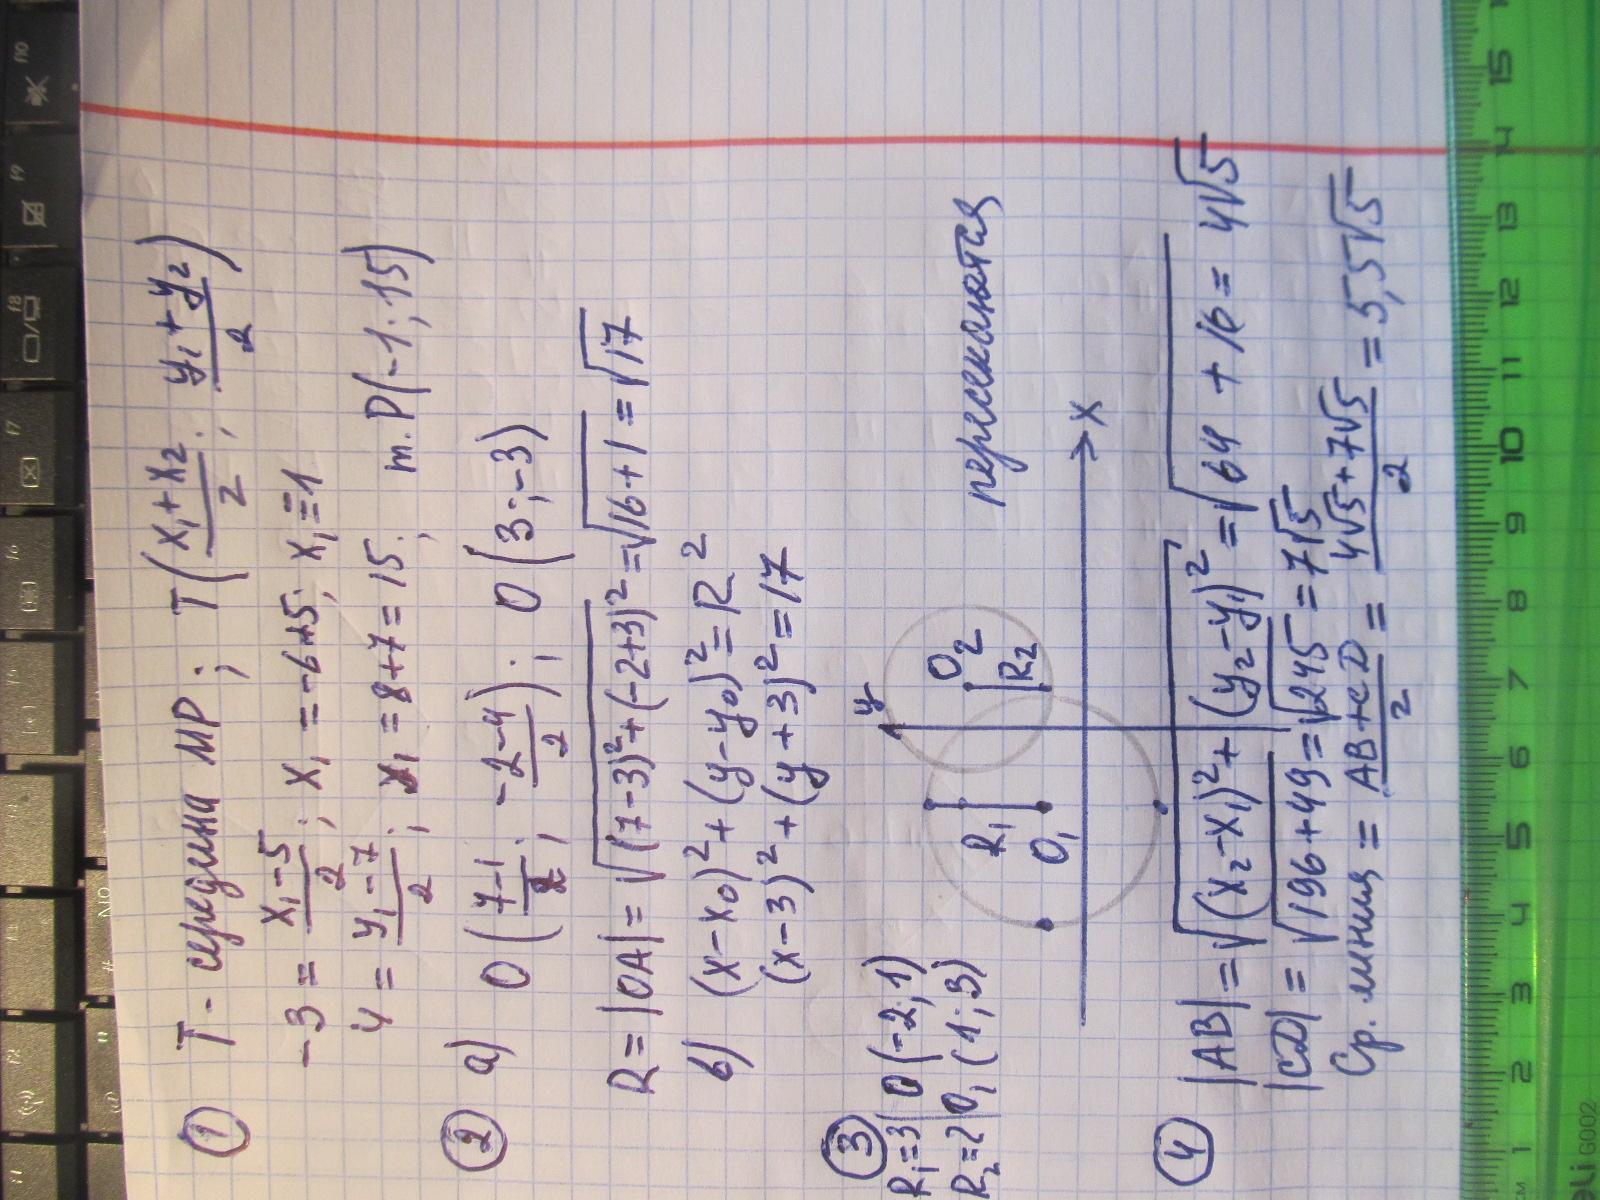 ① T - середина MP; T(x₁+x₂/2; y₁+y₂/2)
-3 = x₁-5/2; x₁ = -6+5; x₁=1
4 = y₁-7/2; x₁ = 8+7=15; т. P(-1;15)
② а) O(7-1/2; -2-4/2); O(3;-3)
R=|OA|=√(7-3)²+(-2+3)²=√16+1=√17
б) (x-x₀)²+(y-y₀)²=R²
(x-3)²+(y+3)²=17
③ R₁=3 O(-2;1)
R₂=2 O₁(1;3)
пересекаются
y
O₂
R₂
R₁
O₁
x
④ |AB|=√(x₂-x₁)²+(y₂-y₁)²=√64+16=4√5
|CD|=√196+49=√245=7√5
Ср. линия = AB+CD/2 = 4√5+7√5/2 = 5,5√5
1 2 3 4 5 6 7 8 9 10 11 12 13 14 15
eli G002
f10
f9
f8
f7